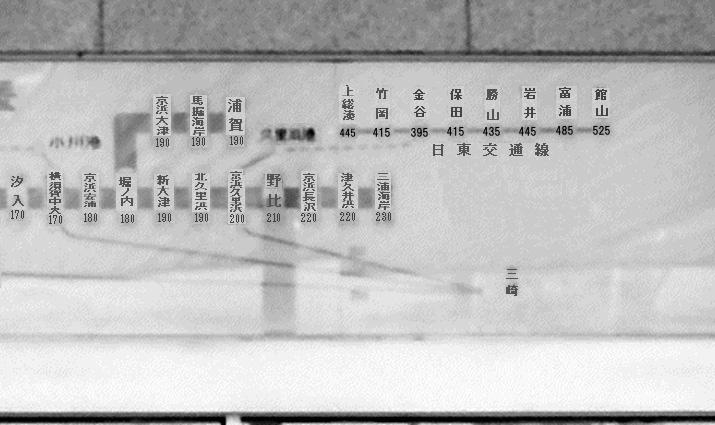 京浜大津 190
馬堀海岸 190
浦賀 190
久里浜港
上総湊 445
竹岡 415
金谷 395
保田 415
勝山 435
岩井 445
富浦 485
館山 525
日東交通線
小川港
汐入 170
横須賀中央 170
京浜安浦 180
堀ノ内 180
新大津 190
北久里浜 190
京浜久里浜 200
野比 210
京浜長沢 220
津久井浜 220
三浦海岸 230
三崎